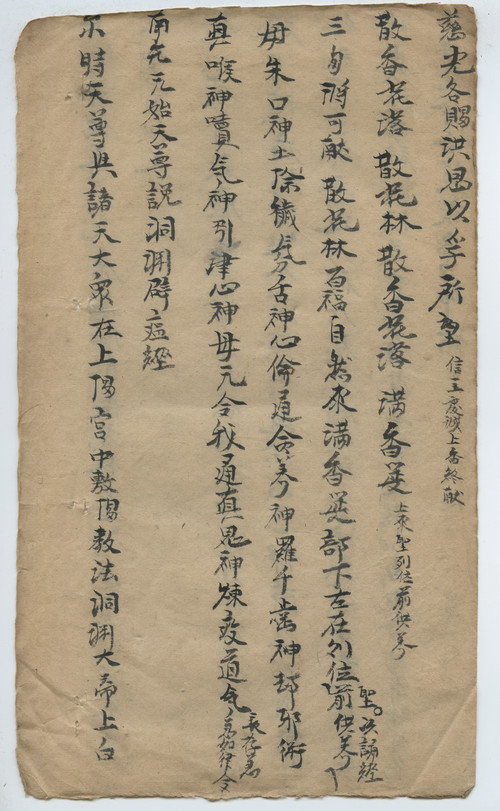 慈光各賜洪恩以孚所望 信士虔誠上香終献
散香花落 散花林 散香花落 满香筵 上來聖列位前供养
三旬將可献 散花林 百福自然來 满香筵 部下左在列位前供养 聖 共誦經
毋朱口神土除穢氛舌神心倫通命养神羅千齒神却邪衛
真喉神賁气神引津心神毋元令我通真思神煉度道气 長存急急如律令
南无元始天尊説洞渊辟瘟經
尔時天尊與諸天大衆在上陽宫中敷陽教法洞渊大帝上白